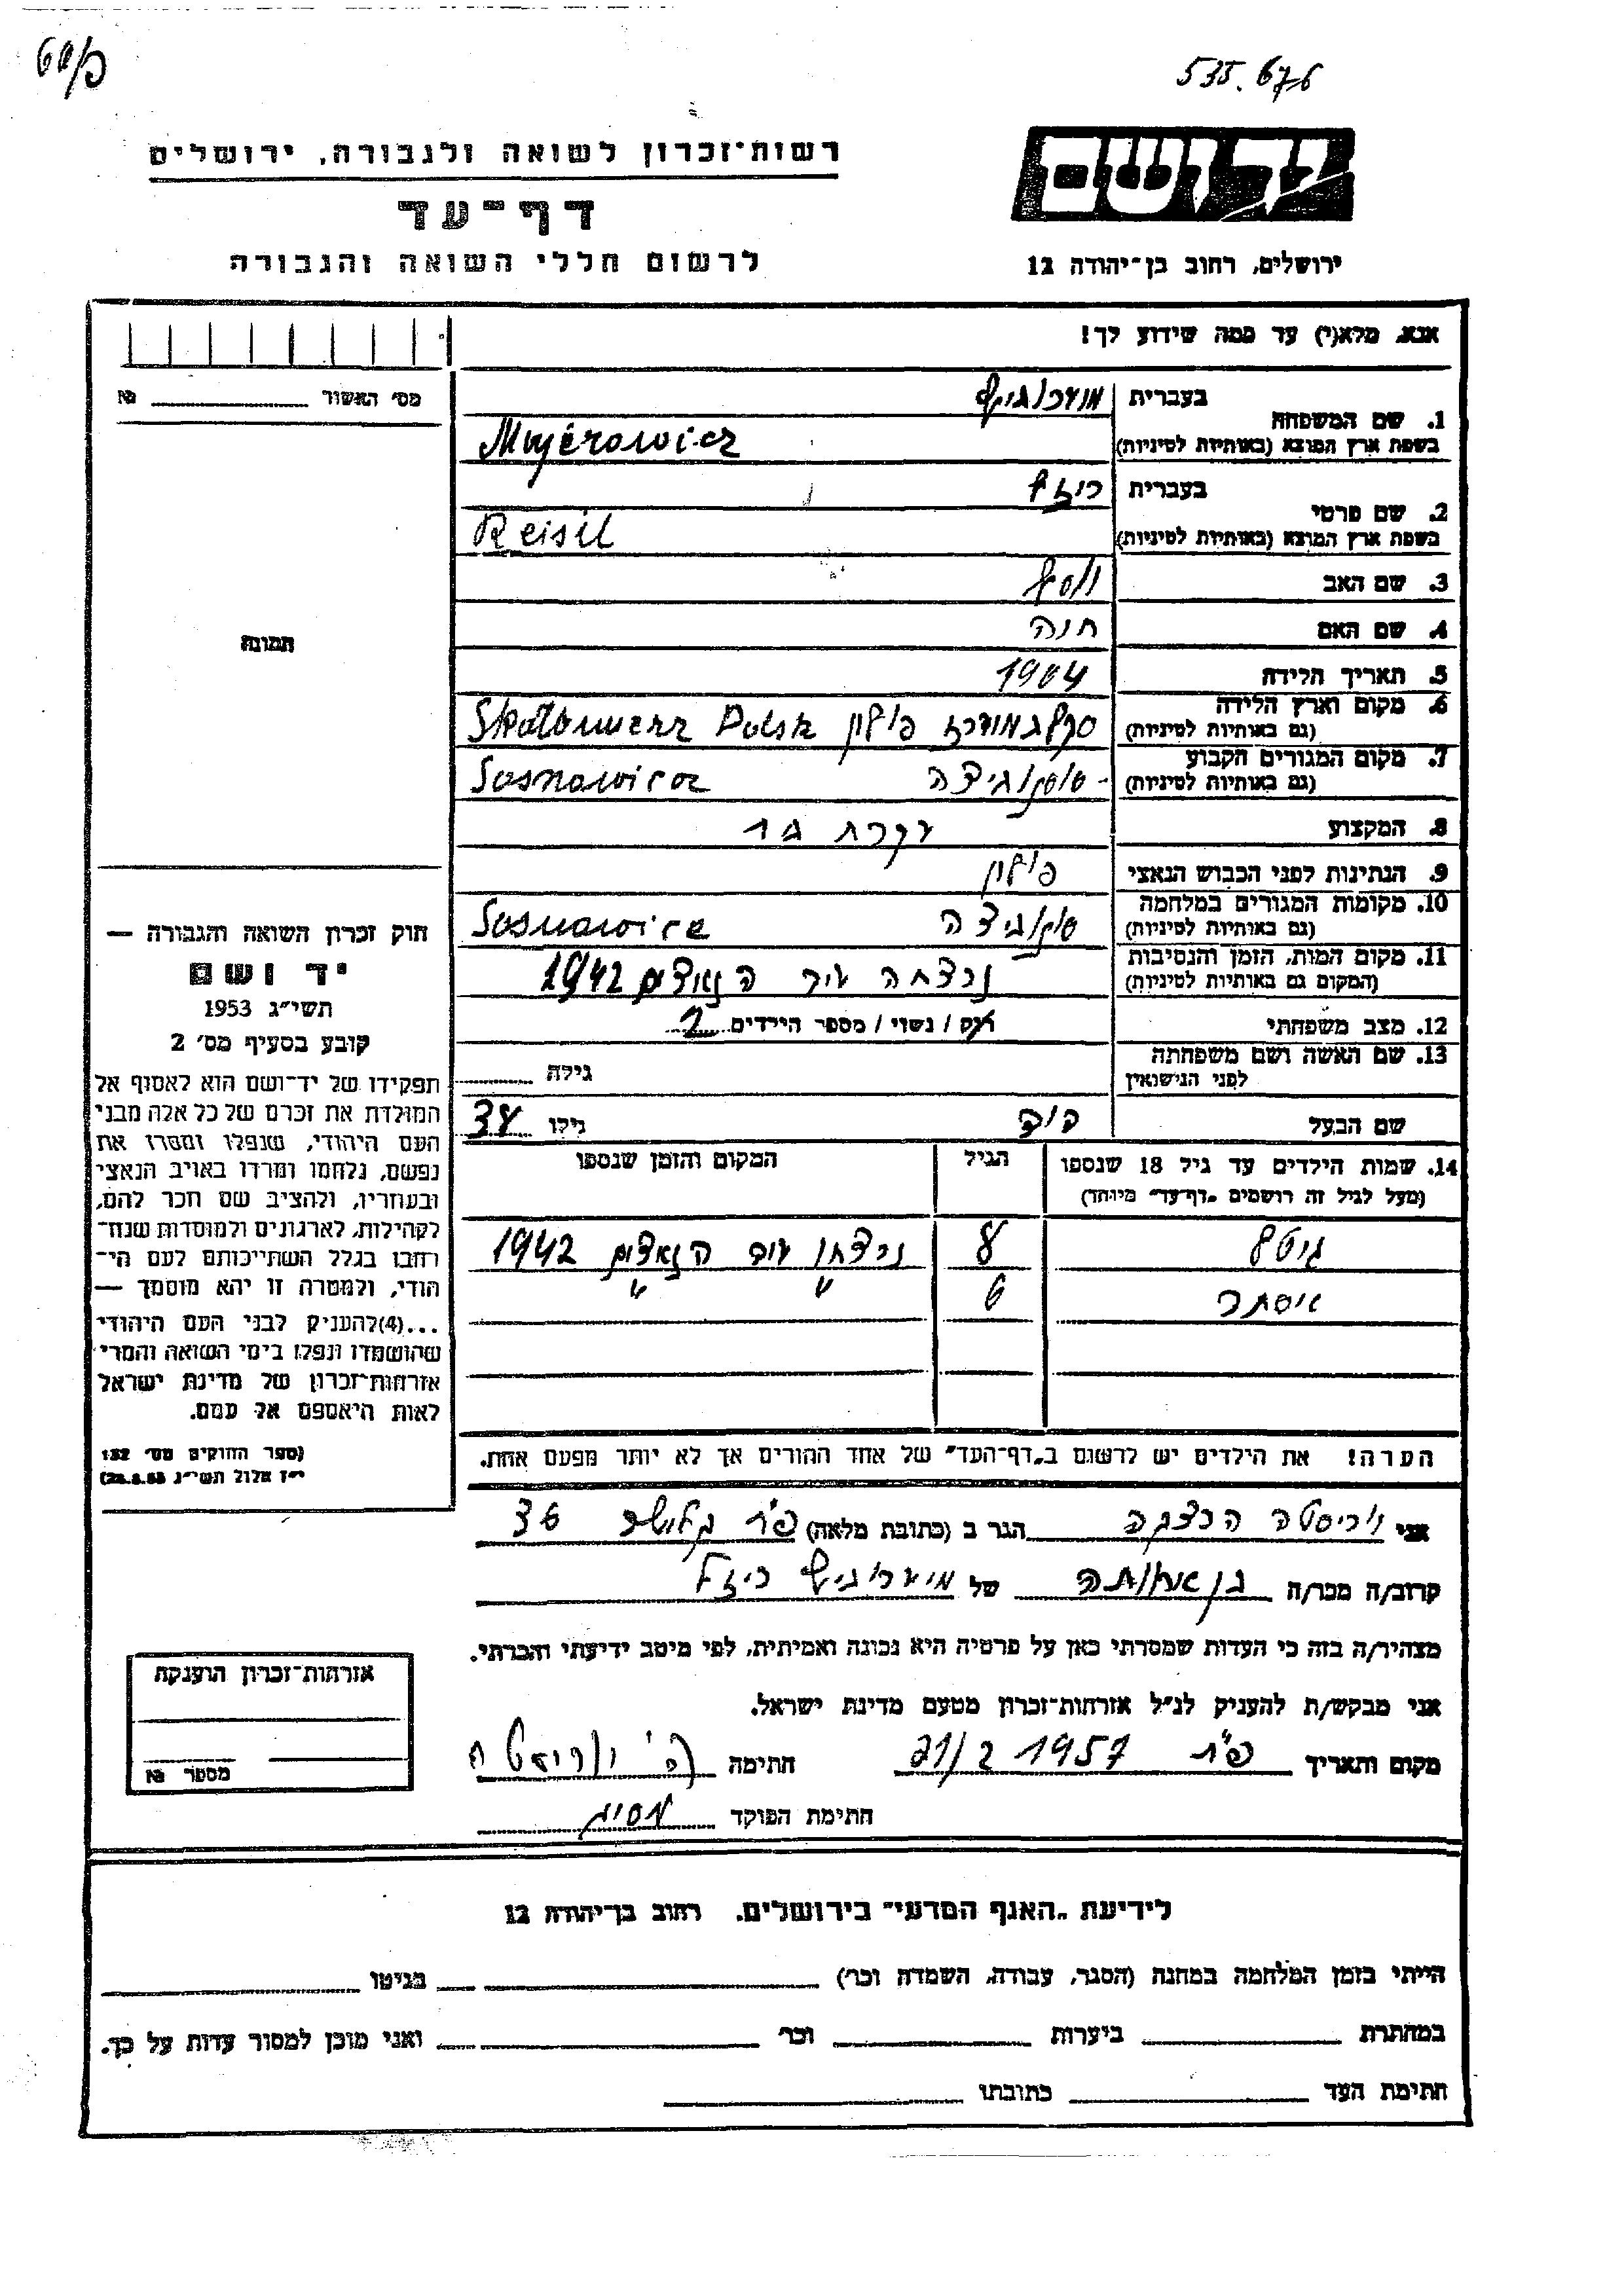 535.676
רשות־זכרון לשואה ולגבורה, ירושלים
דף־עד
לרשום חללי השואה והגבורה
יד ושם
ירושלים, רחוב בן־יהודה 12
אנא, מלא(י) עד כמה שידוע לך!
מס׳ האשור № 
בעברית
1. שם המשפחה
בשפת ארץ המוצא (באותיות לטיניות) Majerowicz
בעברית ריזל
2. שם פרטי
בשפת ארץ המוצא (באותיות לטיניות) Reisil
3. שם האב
4. שם האם חנה
5. תאריך הלידה 1904
6. מקום וארץ הלידה פולין Polsk
(גם באותיות לטיניות)
7. מקום המגורים הקבוע סוסנוביצה Sosnowicz
(גם באותיות לטיניות)
8. המקצוע עקרת בית
9. הנתינות לפני הכבוש הנאצי פולין
10. מקומות המגורים במלחמה Sosnowice
(גם באותיות לטיניות)
11. מקום המות, הזמן והנסיבות נרצחה ע״י הנאצים 1942
(המקום גם באותיות לטיניות)
12. מצב משפחתי רוק / נשוי / מספר הילדים 2
13. שם האשה ושם משפחתה גילה
לפני הנישואין
שם הבעל דוד גילו 38
14. שמות הילדים עד גיל 18 שנספו הגיל המקום והזמן שנספו
(מעל לגיל זה רושמים „דף־עד״ מיוחד)
גיטל 8 נרצחו ע״י הנאצים 1942
אסתר 6 " " "
הערה! את הילדים יש לרשום ב„דף־העד״ של אחד ההורים אך לא יותר מפעם אחת.
תמונה
חוק זכרון השואה והגבורה —
יד ושם
תשי״ג 1953
קובע בסעיף מס׳ 2
תפקידו של יד־ושם הוא לאסוף אל
המולדת את זכרם של כל אלה מבני
העם היהודי, שנפלו ומסרו את
נפשם, נלחמו ומרדו באויב הנאצי
ובעוזריו, ולהציב שם וזכר להם,
לקהילות, לארגונים ולמוסדות שנח־
רבו בגלל השתייכותם לעם הי־
הודי, ולמטרה זו יהא מוסמך —
...(4)להעניק לבני העם היהודי
שהושמדו ונפלו בימי השואה והמרי
אזרחות־זכרון של מדינת ישראל
לאות היאספם אל עמם.
(ספר החוקים מס׳ 132
י״ז אלול תשי״ג 28.8.53)
אני הגר ב (כתובת מלאה) פ״ת 36
קרוב/ה מכר/ה של ריזל
מצהיר/ה בזה כי העדות שמסרתי כאן על פרטיה היא נכונה ואמיתית, לפי מיטב ידיעתי והכרתי.
אני מבקש/ת להעניק לנ״ל אזרחות־זכרון מטעם מדינת ישראל.
מקום ותאריך פ״ת 21/2 1957 חתימה
חתימת הפוקד
אזרחות־זכרון הוענקה
מספר №
לידיעת „האגף המדעי״ בירושלים. רחוב בן־יהודה 12
הייתי בזמן המלחמה במחנה (הסגר, עבודה, השמדה וכר׳) בגיטו
במחתרת ביערות וכר׳ ואני מוכן למסור עדות על כך.
חתימת העד כתובתו